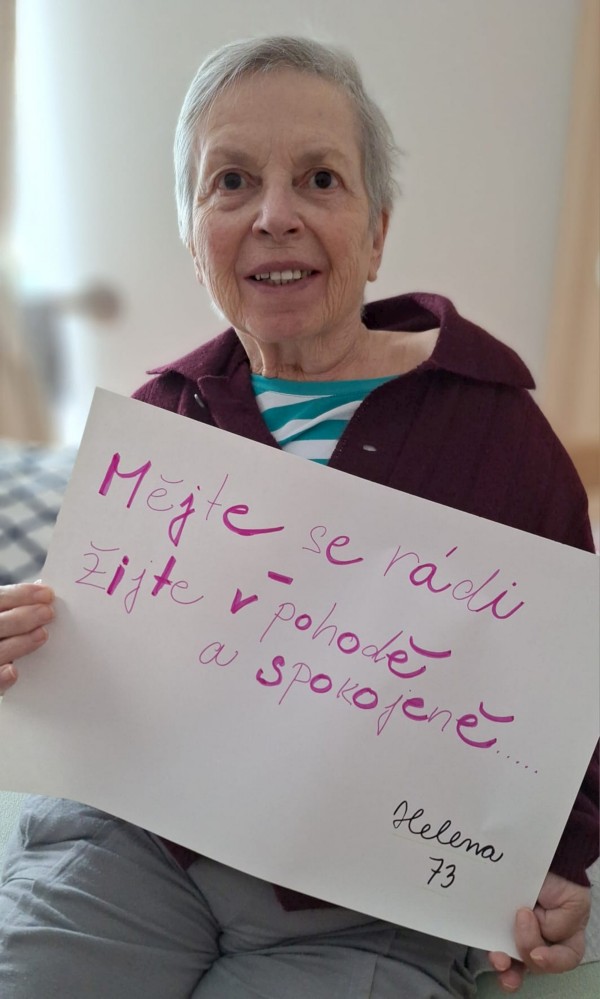 Mějte se rádi
–
žijte v pohodě
a spokojeně......
Helena
73